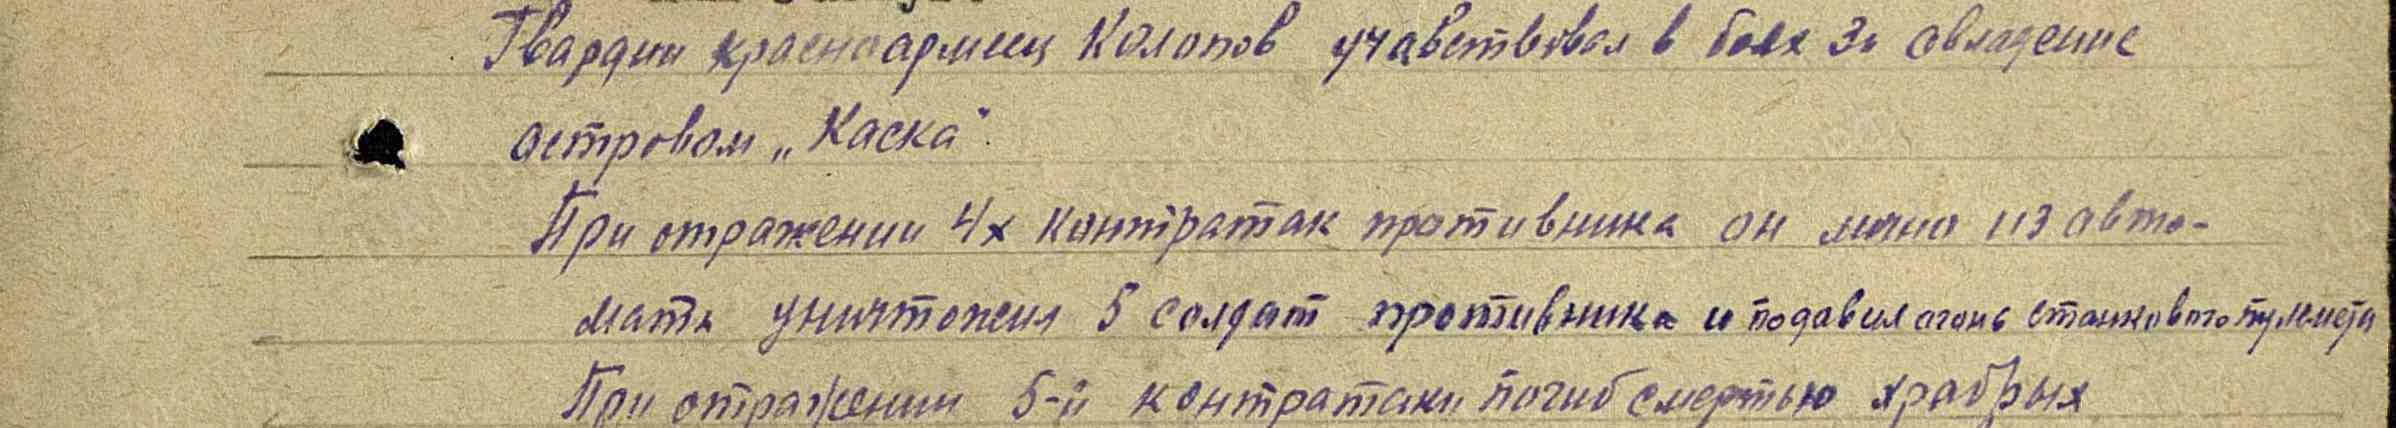 Гвардии красноармеец Колопов учавствовал в боях за овладение
островом „Каска"
При отражении 4х контратак противника он лично из авто-
мата уничтожил 5 солдат противника и подавил огонь станкового пулемета
При отражении 5-й контратаки погиб смертью храбрых